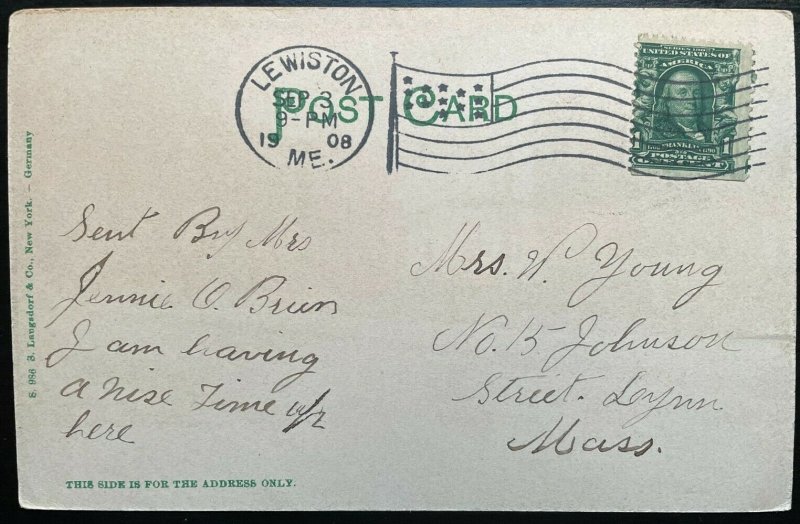 LEWISTON
SEP 3
9-PM
19 08
ME.
POST CARD
SERIES 1902
UNITED STATES OF
AMERICA
1 FRANKLIN 1
POSTAGE
ONE CENT
S. 986 S. Langsdorf & Co., New York. – Germany
Sent By Mrs
Jennie O. Brien
I am having
a nise Time up
here
Mrs. W. Young
No. 15 Johnson
Street. Lynn
Mass.
THIS SIDE IS FOR THE ADDRESS ONLY.